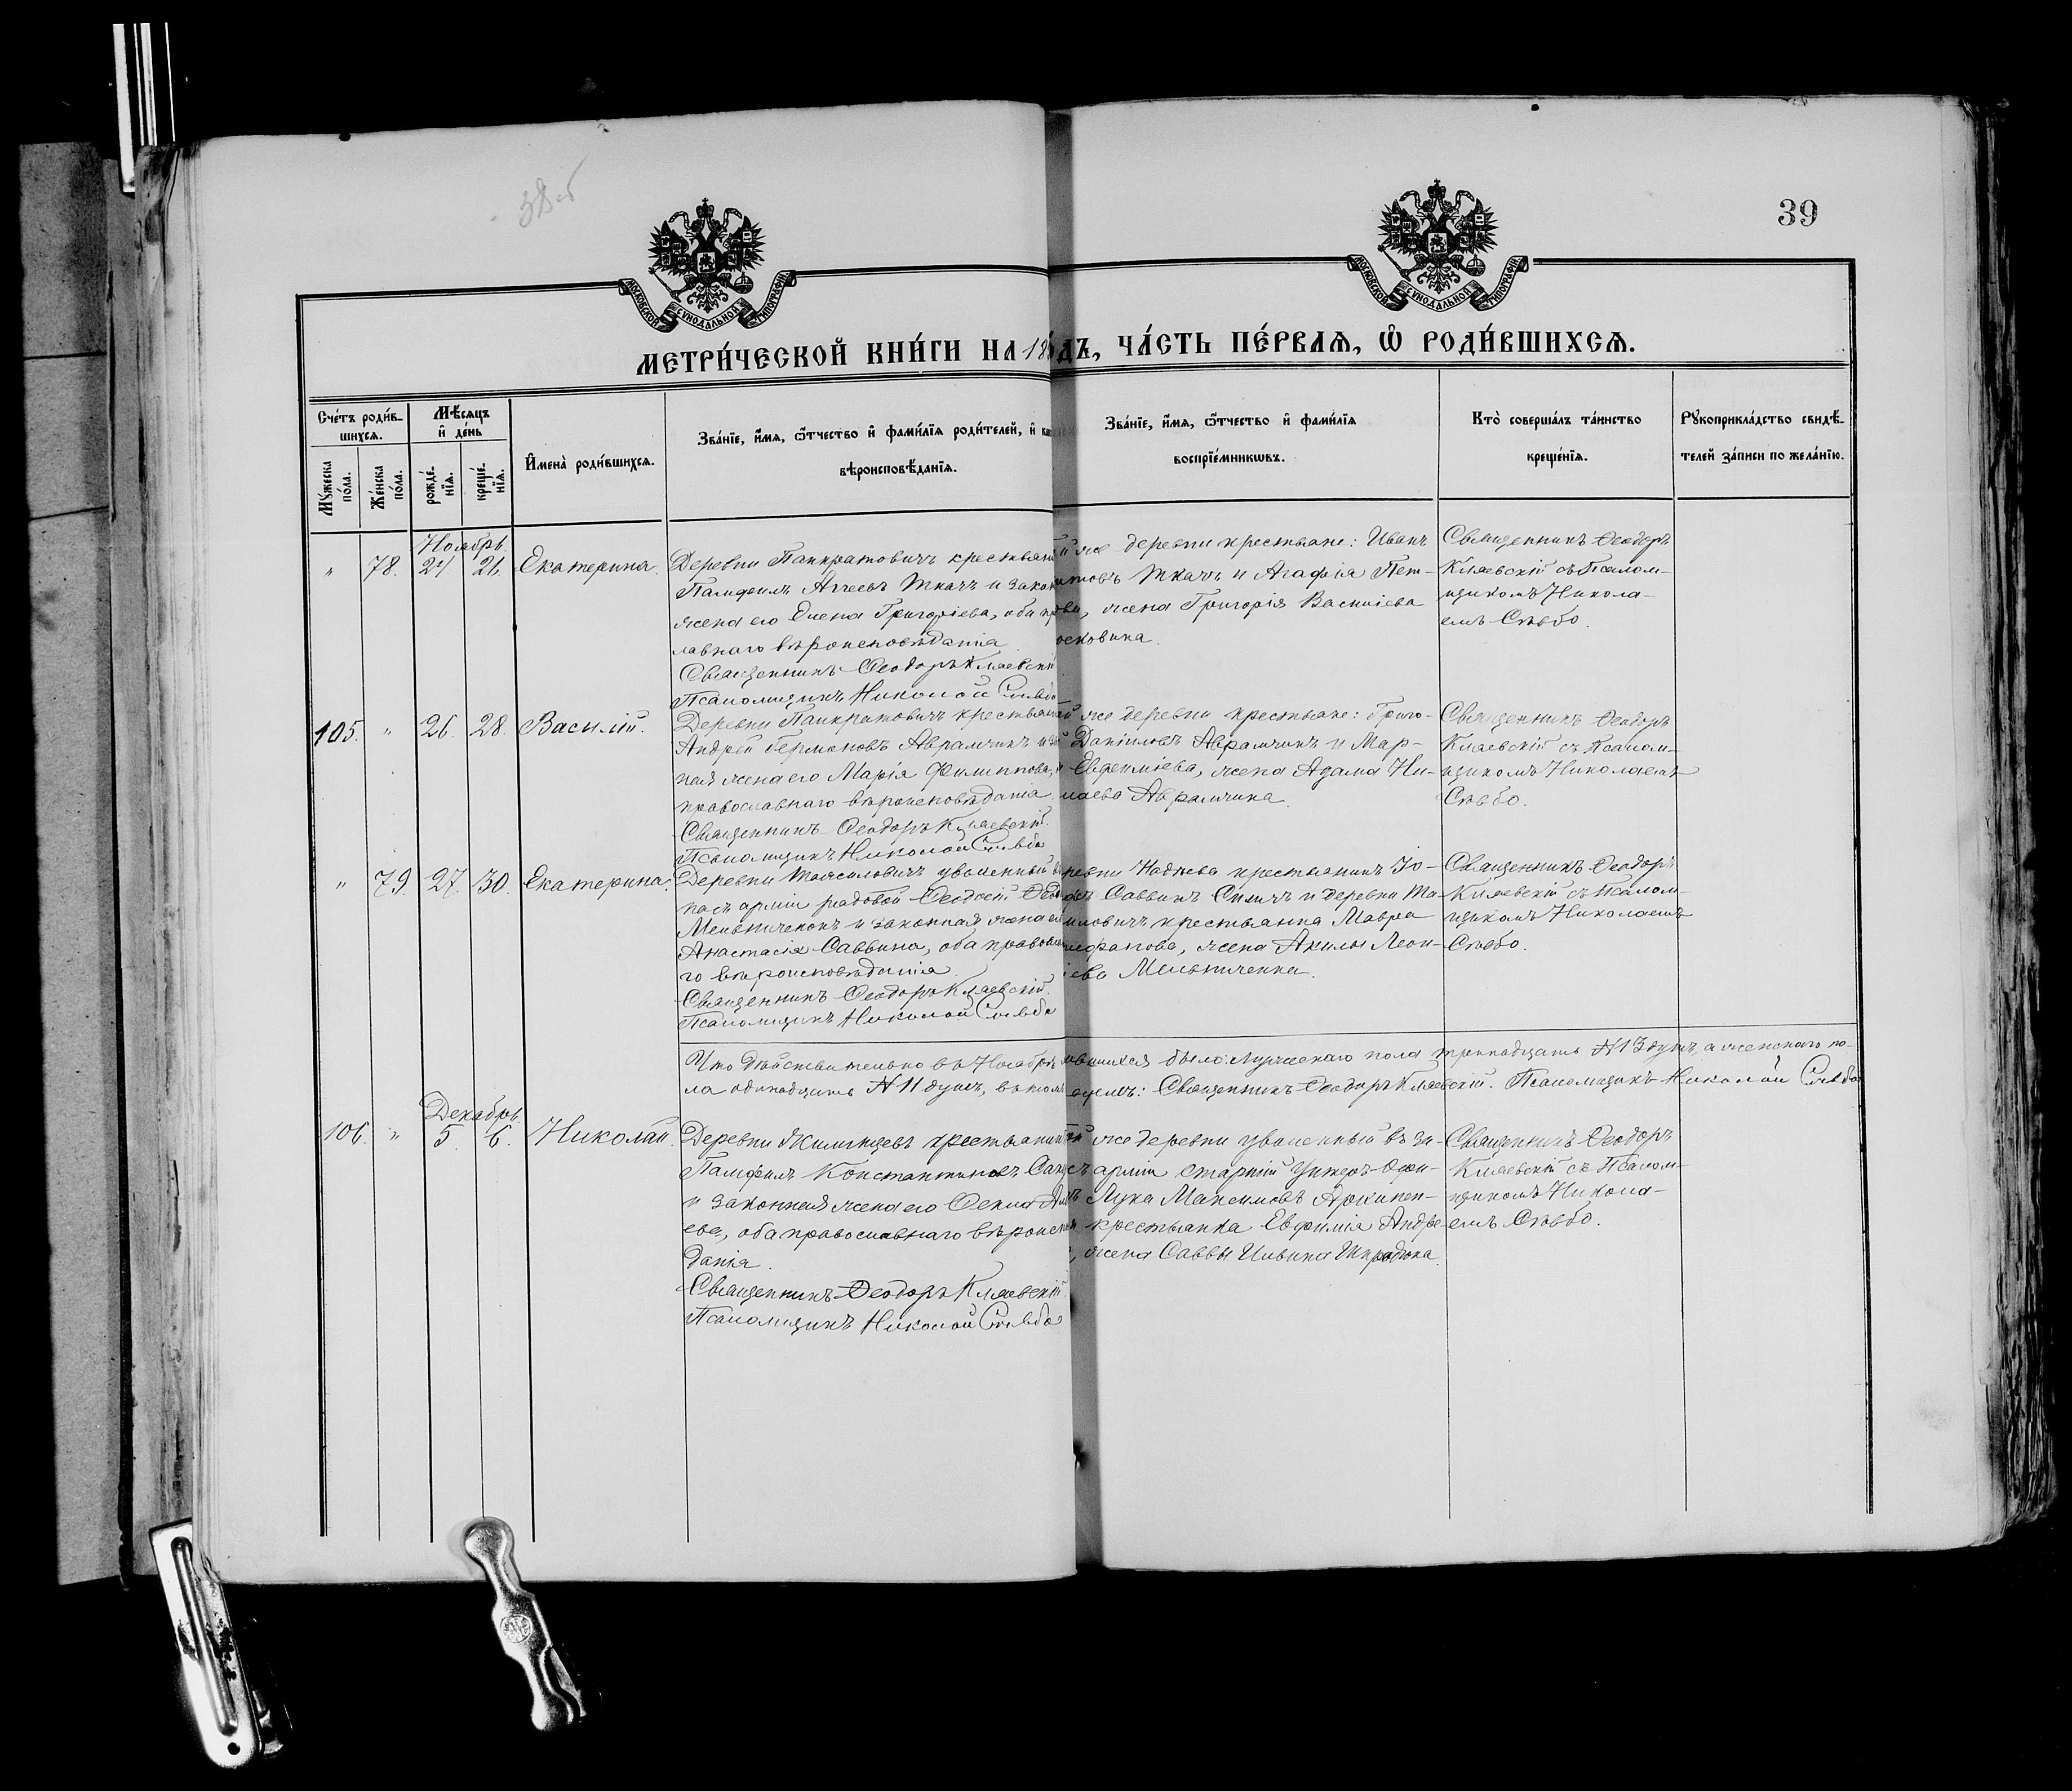 38 об
39
МОСКОВСКОЙ СУНОДАЛЬНОЙ ТИПОГРАФІИ
МОСКОВСКОЙ СУНОДАЛЬНОЙ ТИПОГРАФІИ
МЕТРИ́ЧЕСКОЙ КНИ́ГИ НА 18
дъ, ЧА́СТЬ ПЕ́РВАѦ, Ѡ РОДИ́ВШИХСѦ.
Сче́тъ роди́в-
шихсѧ.
Мꙋжеска по́ла.
Же́нска по́ла.
Мѣ́сѧцъ
и҆ де́нь
рожде́-
нїѧ.
креще́-
нїѧ.
И҆мена̀ роди́вшихсѧ.
Зва́нїе, и҆́мѧ, ѻ҆́тчество и҆ фами́лїѧ роди́телей, и҆
вѣроисповѣ́данїѧ.
Зва́нїе, и҆́мѧ, ѻ҆́тчество и҆ фами́лїѧ
воспрїе́мникѡвъ.
Кто̀ соверша́лъ та́инство
креще́нїѧ.
Рꙋкоприкла́дство свидѣ́-
телей за́писи по жела́нїю.
Ноябрь
" 78. 24 26. Екатерина.
Деревни Панкратовичъ крестьян
Памфилъ Агеевъ Ткачъ и закон
жена его Елена Григоріева, оба пра
лавнаго вѣроисповѣданія
Священникъ Ѳеодоръ Кляевскій
Псаломщикъ Николай Слѣбо
й же деревни крестьяне: Иванъ
итовъ Ткачъ и Агафія Пет-
ва, жена Григорія Василіева
осковика.
Священникъ Ѳеодоръ
Кляевскій съ Псалом-
щикомъ Никола-
емъ Слѣбо.
105. " 26. 28. Василій.
Деревни Панкратовичъ крестьян
Андрей Германовъ Аврамчикъ и за
ная жена его Марія Филиппова,
православнаго вѣроисповѣданія
Священникъ Ѳеодоръ Кляевскій.
Псаломщикъ Николай Слѣбо
й же деревни крестьяне: Григо-
й Даніиловъ Аврамчикъ и Мар-
Евфиміева, жена Адама Ни-
лаева Аврамчика.
Священникъ Ѳеодоръ
Кляевскій съ Псалом-
щикомъ Николаемъ
Слѣбо.
" 79. 27. 30. Екатерина.
Деревни уволенный въ
пасъ арміи рядовой Ѳеодосій
Мельниченокъ и законная жена ег
Анастасія Саввина, оба православна
го вѣроисповѣданія.
Священникъ Ѳеодоръ Кляевскій.
Псаломщикъ Николай Слѣбо
ревни крестьянинъ Іо-
фъ Саввинъ и деревни
иловичъ крестьянка Мавра
жена Акилы Леон-
іева Мельниченка.
Священникъ Ѳеодоръ
Кляевскій съ Псалом-
щикомъ Николаемъ
Слѣбо.
Что дѣйствительно въ Ноябрѣ
ла одинадцать № 11 душъ, въ томъ
ившихся было: мужескаго пола тринадцать № 13 душъ, а женскаго по-
Священникъ Ѳеодоръ Кляевскій. Псаломщикъ Николай Слѣбо
Декабрь
106. " 5. 6. Николай.
Деревни крестьянин
Памфилъ Константиновъ
и законная жена его Ѳекла
ева, оба православнаго вѣроиспо
данія.
Священникъ Ѳеодоръ Кляевскій.
Псаломщикъ Николай Слѣбо
й же деревни уволенный въ за-
съ арміи старшій Унтеръ-Офи-
ъ Лука Максимовъ Архипен-
крестьянка Евфимія Андре-
, жена Саввы
Священникъ Ѳеодоръ
Кляевскій съ Псалом-
щикомъ Никола-
емъ Слѣбо.